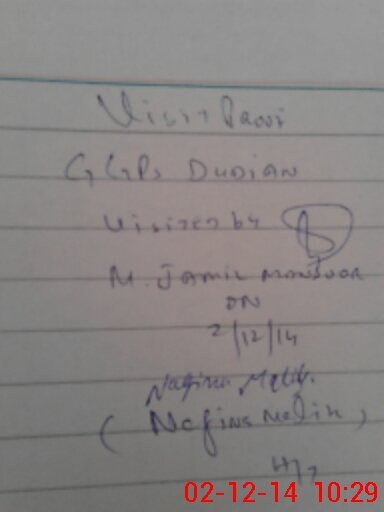 Visit Proof
GGPS Dudian
Visited by
M. Jamil Manzoor
ON
2/12/14
Nagina Malik
(Nagina Malik)
H/T
02-12-14 10:29